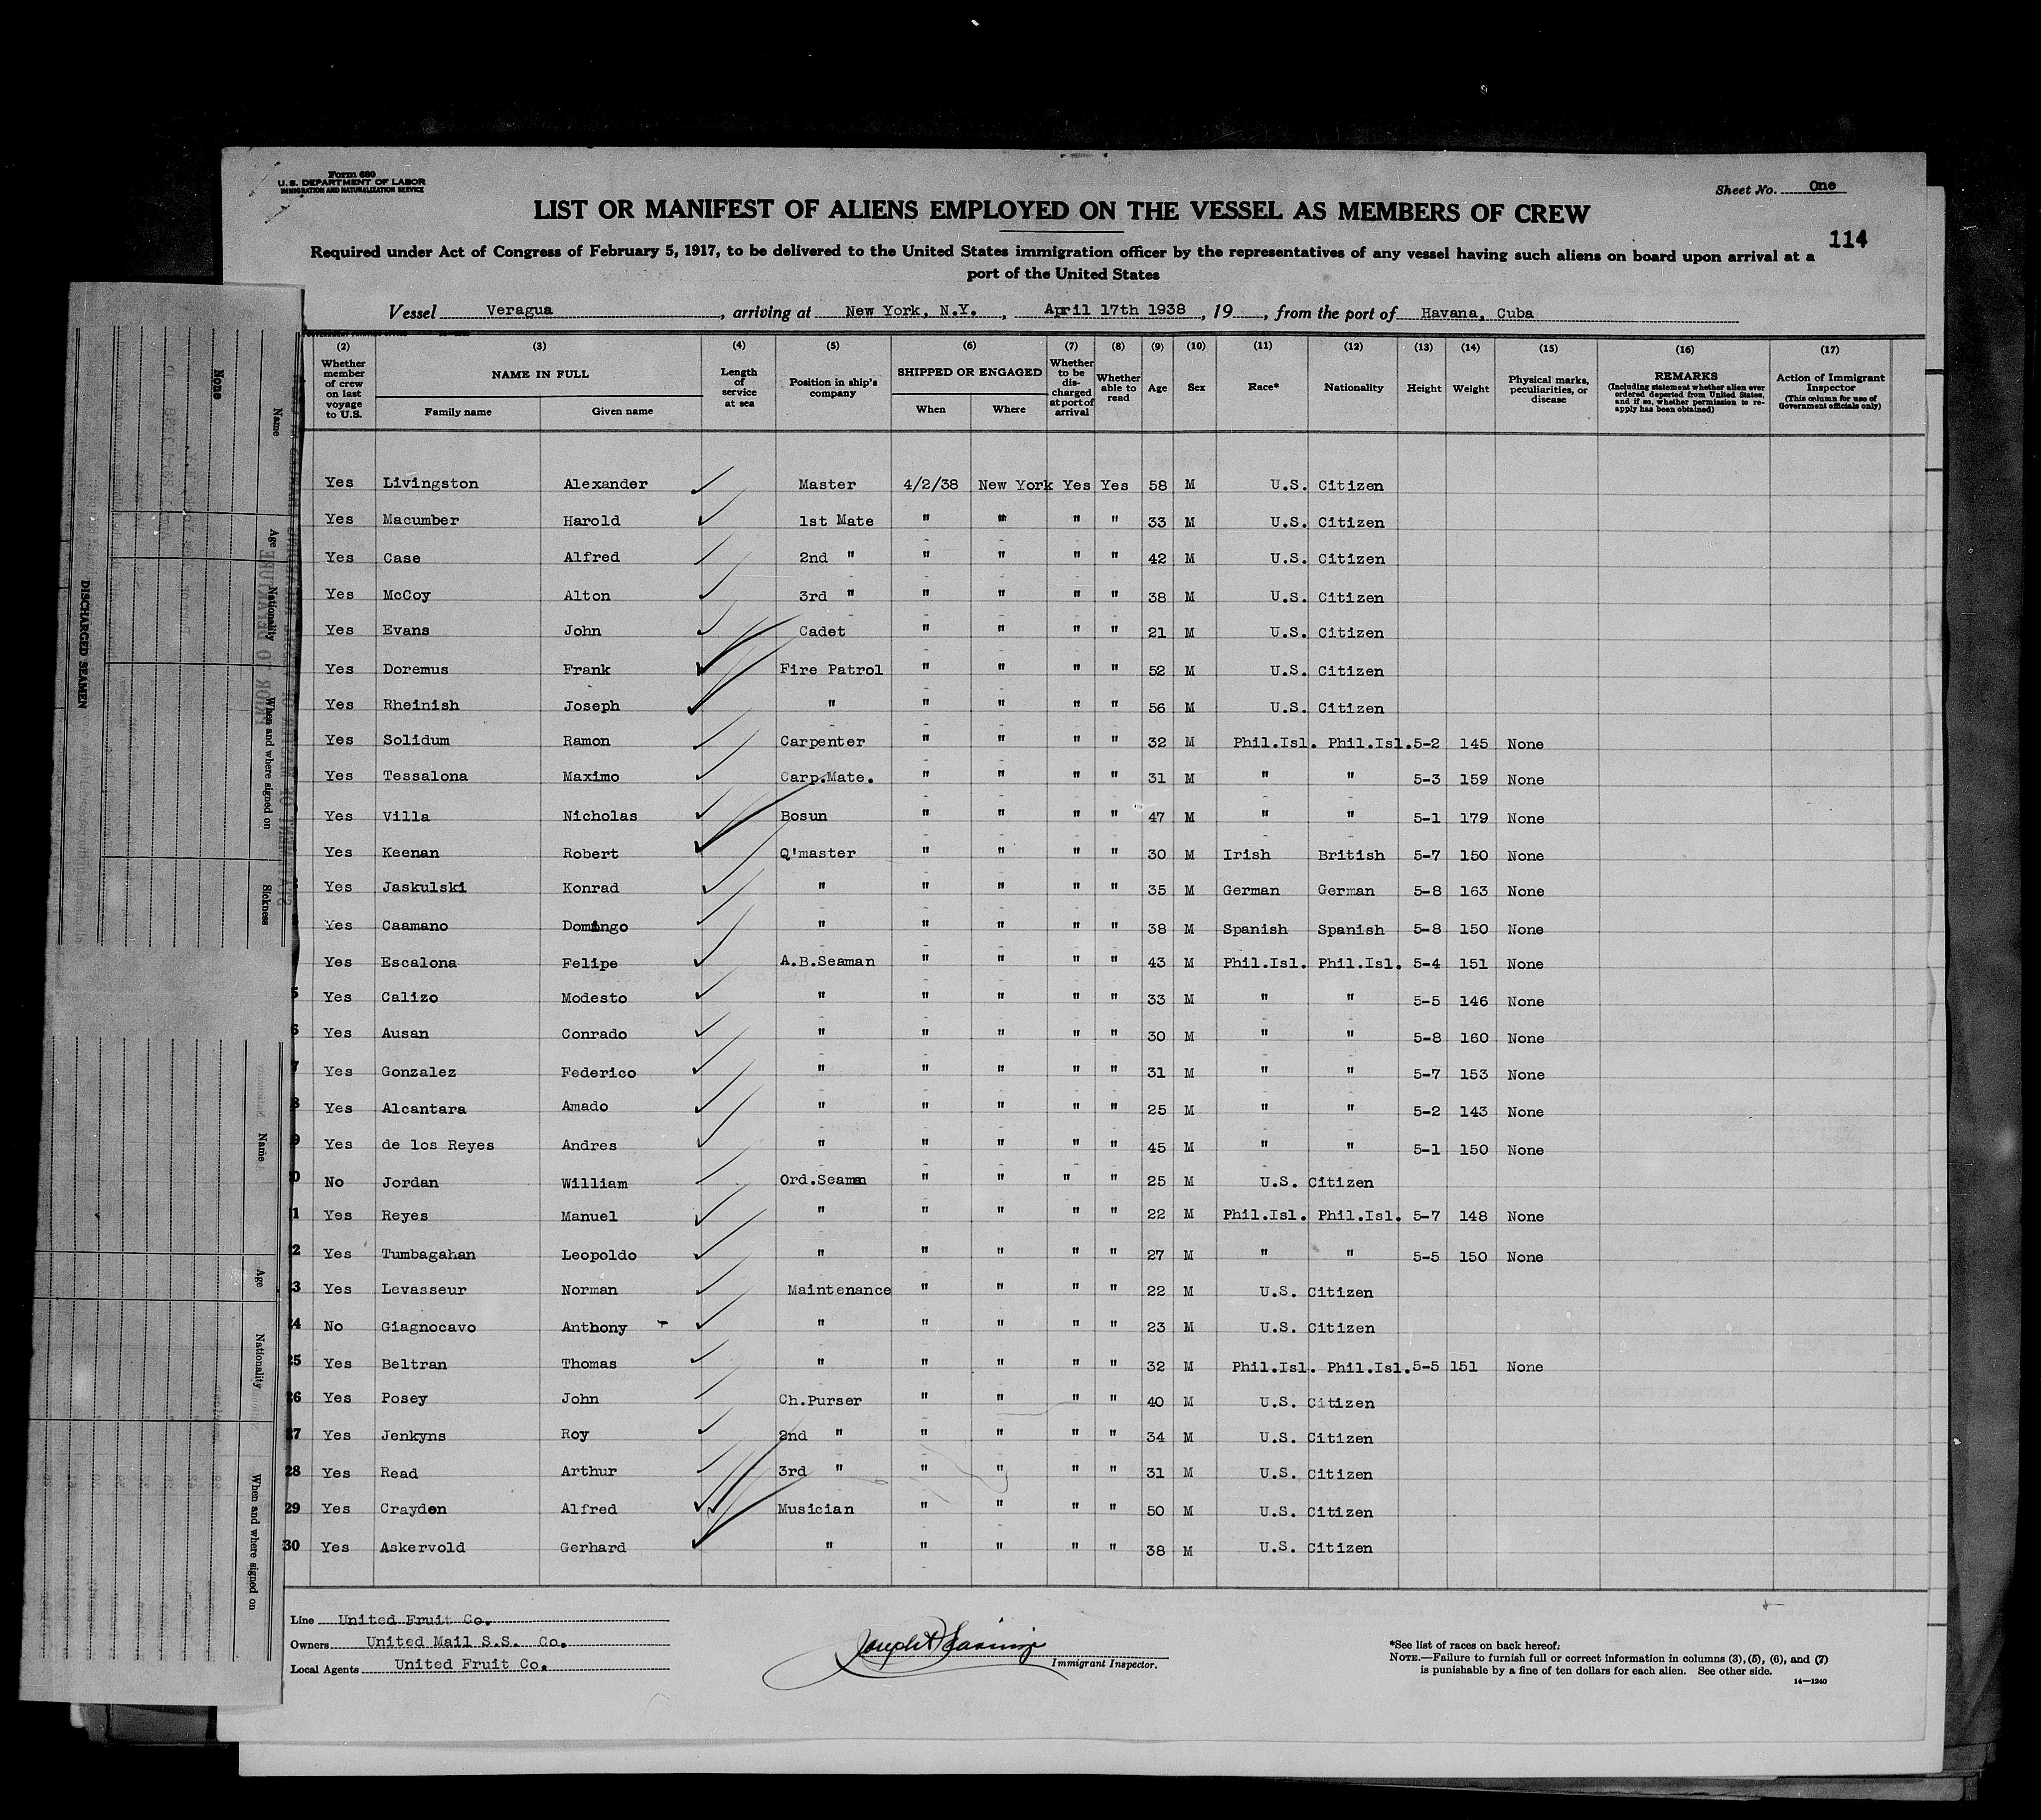 Form 680
U. S. DEPARTMENT OF LABOR
IMMIGRATION AND NATURALIZATION SERVICE
Sheet No. One
LIST OR MANIFEST OF ALIENS EMPLOYED ON THE VESSEL AS MEMBERS OF CREW
114
Required under Act of Congress of February 5, 1917, to be delivered to the United States immigration officer by the representatives of any vessel having such aliens on board upon arrival at a
port of the United States
Vessel Veragua, arriving at New York, N.Y., April 17th 1938, 19, from the port of Havana, Cuba
(2) (3) (4) (5) (6) (7) (8) (9) (10) (11) (12) (13) (14) (15) (16) (17)
Whether member of crew on last voyage to U.S.
NAME IN FULL
Family name Given name
Length of service at sea
Position in ship's company
SHIPPED OR ENGAGED
When Where
Whether to be discharged at port of arrival
Whether able to read
Age
Sex
Race*
Nationality
Height
Weight
Physical marks, peculiarities, or disease
REMARKS
(Including statement whether alien ever ordered deported from United States, and if so, whether permission to reapply has been obtained)
Action of Immigrant Inspector
(This column for use of Government officials only)
Yes Livingston Alexander Master 4/2/38 New York Yes Yes 58 M U.S. Citizen
Yes Macumber Harold 1st Mate " " " " 33 M U.S. Citizen
Yes Case Alfred 2nd " " " " " 42 M U.S. Citizen
Yes McCoy Alton 3rd " " " " " 38 M U.S. Citizen
Yes Evans John Cadet " " " " 21 M U.S. Citizen
Yes Doremus Frank Fire Patrol " " " " 52 M U.S. Citizen
Yes Rheinish Joseph " " " " " 56 M U.S. Citizen
Yes Solidum Ramon Carpenter " " " " 32 M Phil.Isl. Phil.Isl. 5-2 145 None
Yes Tessalona Maximo Carp.Mate. " " " " 31 M " " 5-3 159 None
Yes Villa Nicholas Bosun " " " " 47 M " " 5-1 179 None
Yes Keenan Robert Q'master " " " " 30 M Irish British 5-7 150 None
Yes Jaskulski Konrad " " " " " 35 M German German 5-8 163 None
Yes Caamano Domingo " " " " " 38 M Spanish Spanish 5-8 150 None
Yes Escalona Felipe A.B.Seaman " " " " 43 M Phil.Isl. Phil.Isl. 5-4 151 None
5 Yes Calizo Modesto " " " " " 33 M " " 5-5 146 None
6 Yes Ausan Conrado " " " " " 30 M " " 5-8 160 None
7 Yes Gonzalez Federico " " " " " 31 M " " 5-7 153 None
8 Yes Alcantara Amado " " " " " 25 M " " 5-2 143 None
9 Yes de los Reyes Andres " " " " " 45 M " " 5-1 150 None
0 No Jordan William Ord.Seaman " " " " 25 M U.S. Citizen
1 Yes Reyes Manuel " " " " " 22 M Phil.Isl. Phil.Isl. 5-7 148 None
2 Yes Tumbagahan Leopoldo " " " " " 27 M " " 5-5 150 None
3 Yes Levasseur Norman Maintenance " " " " 22 M U.S. Citizen
4 No Giagnocavo Anthony " " " " " 23 M U.S. Citizen
25 Yes Beltran Thomas " " " " " 32 M Phil.Isl. Phil.Isl. 5-5 151 None
26 Yes Posey John Ch.Purser " " " " 40 M U.S. Citizen
27 Yes Jenkyns Roy 2nd " " " " " 34 M U.S. Citizen
28 Yes Read Arthur 3rd " " " " " 31 M U.S. Citizen
29 Yes Crayden Alfred Musician " " " " 50 M U.S. Citizen
30 Yes Askervold Gerhard " " " " " 38 M U.S. Citizen
Line United Fruit Co.
Owners United Mail S.S. Co.
Local Agents United Fruit Co.
Immigrant Inspector.
*See list of races on back hereof.
NOTE.—Failure to furnish full or correct information in columns (3), (5), (6), and (7)
is punishable by a fine of ten dollars for each alien. See other side.
14—1240
DISCHARGED SEAMEN
None
Name
Age
Nationality
When and where signed on
Sickness
Name
Age
Nationality
When and where signed on